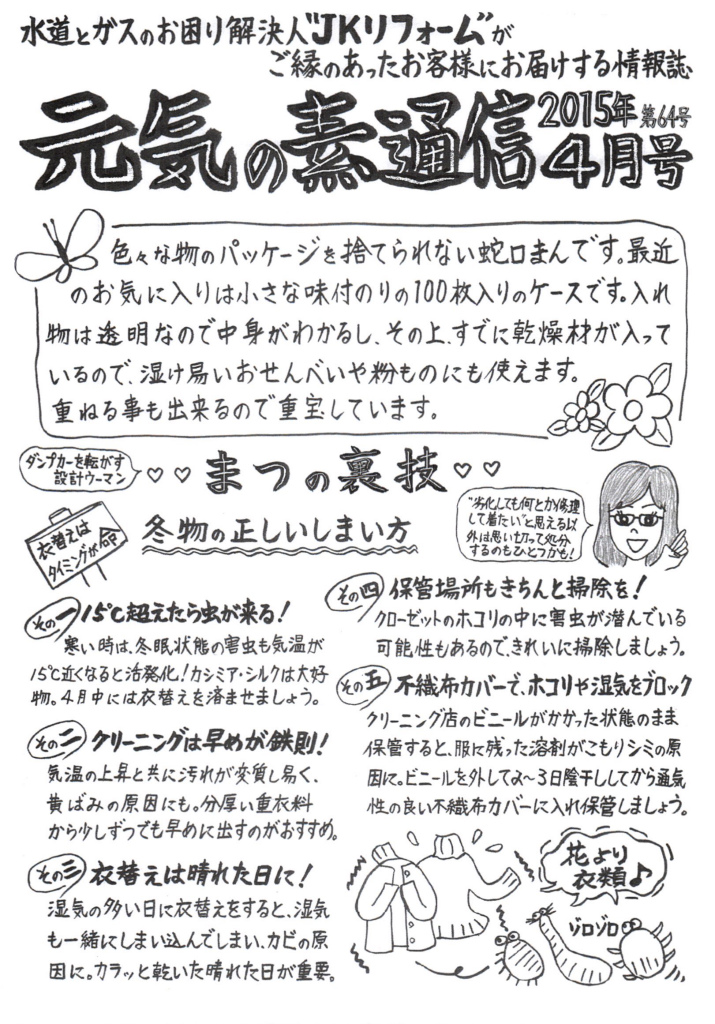 水道とガスのお困り解決人"JKリフォーム"が
ご縁のあったお客様にお届けする情報誌
元気の素通信
2015年 第64号
4月号
色々な物のパッケージを捨てられない蛇口まんです。最近
のお気に入りは小さな味付のりの100枚入りのケースです。入れ
物は透明なので中身がわかるし、その上、すでに乾燥材が入って
いるので、湿け易いおせんべいや粉ものにも使えます。
重ねる事も出来るので重宝しています。
ダンプカーを転がす
設計ウーマン
♡♡まつの裏技♡♡
衣替えは
タイミングが命
冬物の正しいしまい方
"劣化しても何とか修理
して着たい"と思える以
外は思い切って処分
するのもひとつかも!
その一 15℃超えたら虫が来る!
寒い時は、冬眠状態の害虫も気温が
15℃近くなると活発化!カシミア・シルクは大好
物。4月中には衣替えを済ませましょう。
その二 クリーニングは早めが鉄則!
気温の上昇と共に汚れが変質し易く、
黄ばみの原因にも。分厚い重衣料
から少しずつでも早めに出すのがおすすめ。
その三 衣替えは晴れた日に!
湿気の多い日に衣替えをすると、湿気
も一緒にしまい込んでしまい、カビの原
因に。カラッと乾いた晴れた日が重要。
その四 保管場所もきちんと掃除を!
クローゼットのホコリの中に害虫が潜んでいる
可能性もあるので、きれいに掃除しましょう。
その五 不織布カバーで、ホコリや湿気をブロック
クリーニング店のビニールがかかった状態のまま
保管すると、服に残った溶剤がこもりシミの原
因に。ビニールを外して2~3日陰干ししてから通気
性の良い不織布カバーに入れ保管しましょう。
花より
衣類♪
ゾロゾロ